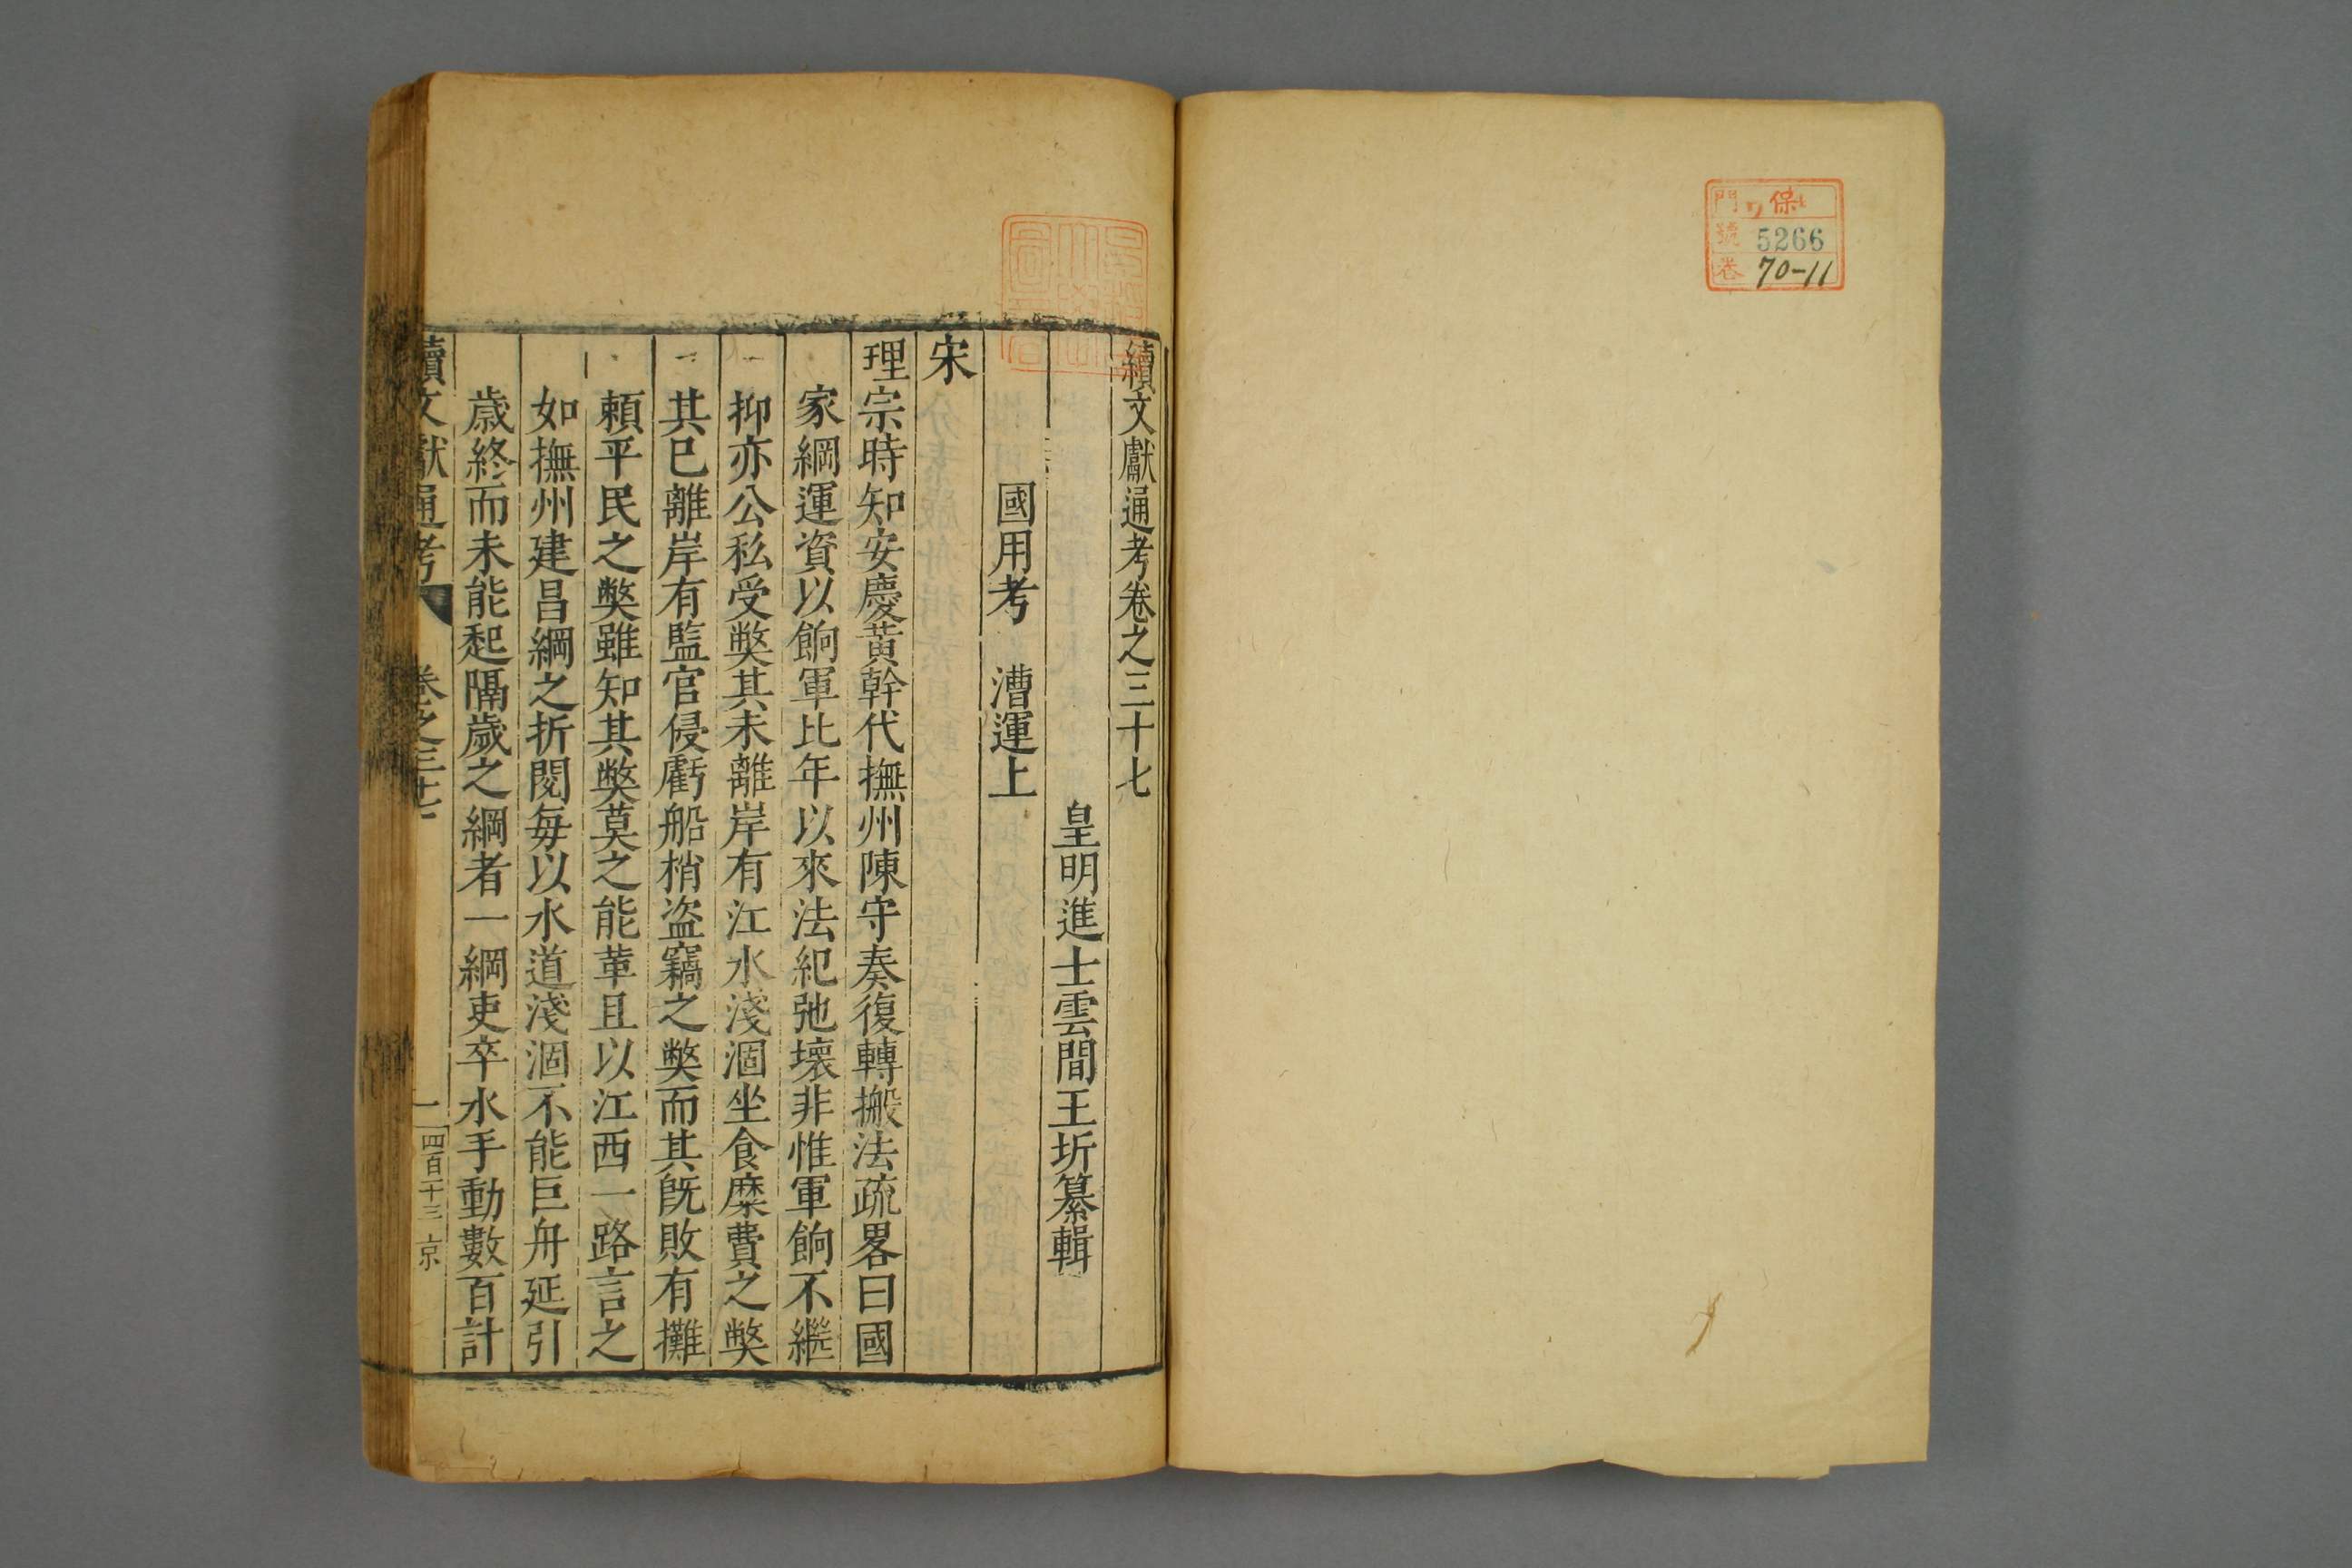 門 保
號 5266
卷 70-11
續文獻通考卷之三十七
皇明進士雲間王圻纂輯
國用考 漕運上
宋
理宗時知安慶黃幹代撫州陳守奏復轉搬法疏畧曰國
家綱運資以餉軍比年以來法紀弛壞非惟軍餉不繼
抑亦公私受獘其未離岸有江水淺涸坐食糜費之獘
其已離岸有監官侵虧船梢盗竊之獘而其旣敗有攤
頼平民之獘雖知其獘莫之能革且以江西一路言之
如撫州建昌綱之折閱每以水道淺涸不能巨舟延引
歲終而未能起隔歲之綱者一綱吏卒水手動數百計
續文獻通考 卷之三十七 一 四百二十三 京